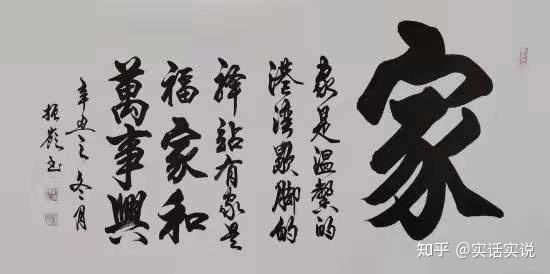 家
家是温馨的
港湾歇脚的
驿站有家是
福家和
萬事興
辛丑之冬月
振嶺书
知乎 @实话实说